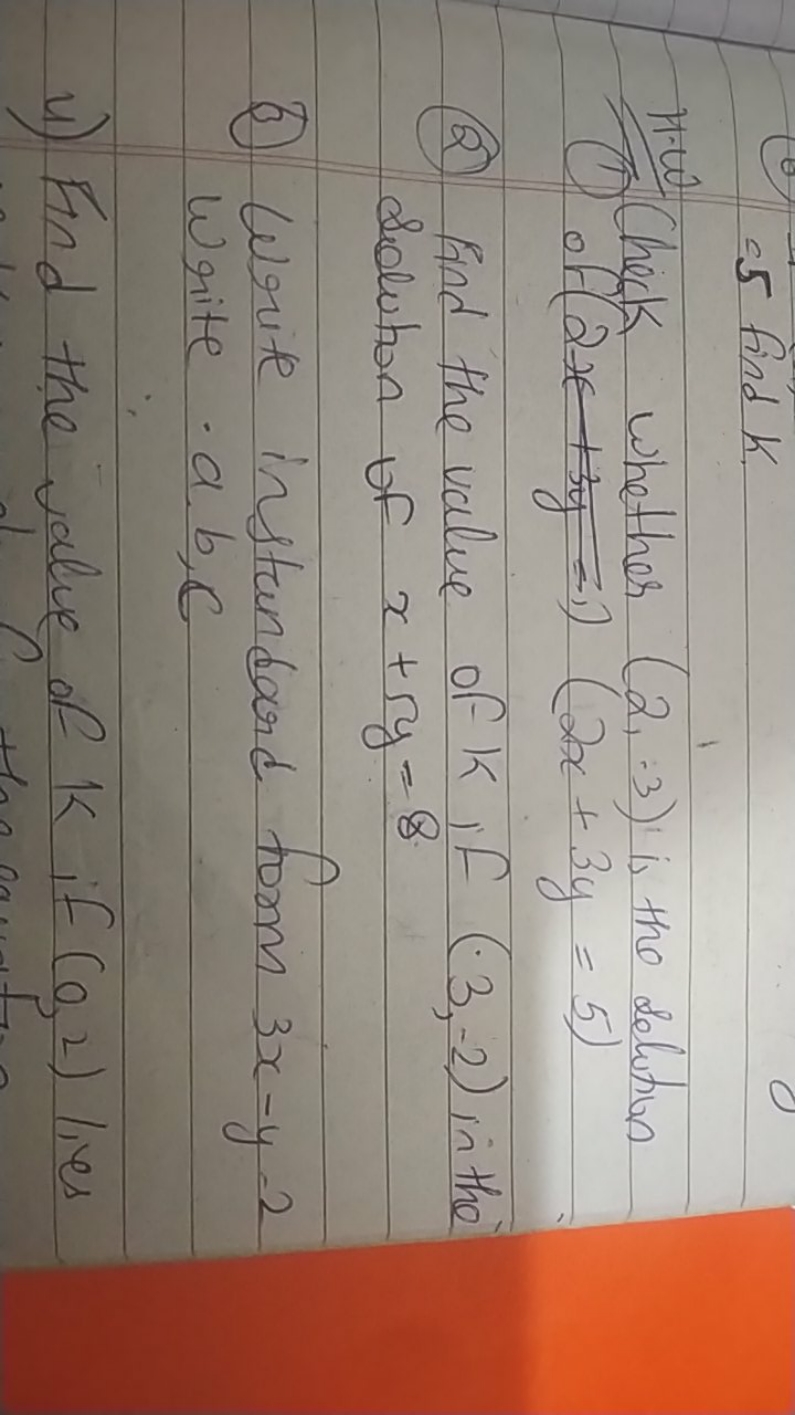 = 5 find k
H.W
① Check whether (2, -3) is the solution
of (2x + 3y = 1) (2x + 3y = 5)
② Find the value of k if (3, -2) in the
solution of x + 5y = 8
③ Write instandard form 3x - y - 2
Write a, b, c
4) Find the value of k if (0, 2) lies